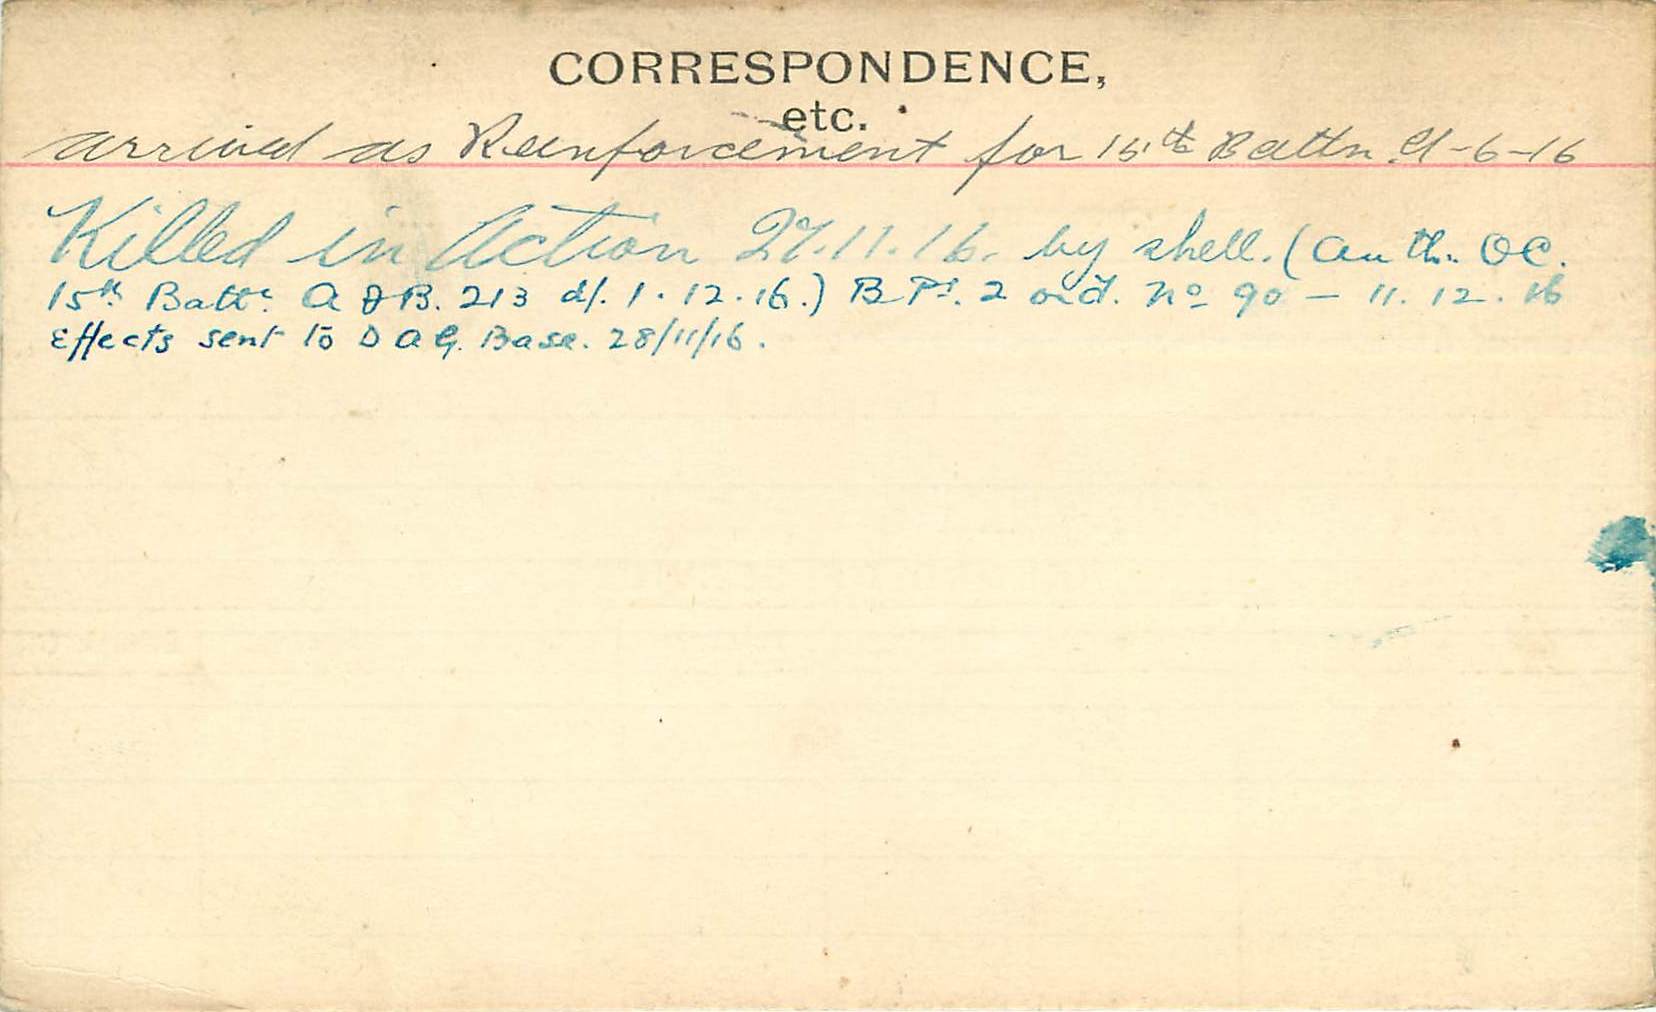 CORRESPONDENCE,
etc.
arrived as Reinforcement for 15th Battn -6-16
Killed in Action 27.11.16. by shell. (Auth. OC.
15th Battn A & B. 213 d/. 1.12.16.) B Pt. 2 ord. No 90 — 11.12.16
Effects sent to D A G. Base. 28/11/16.